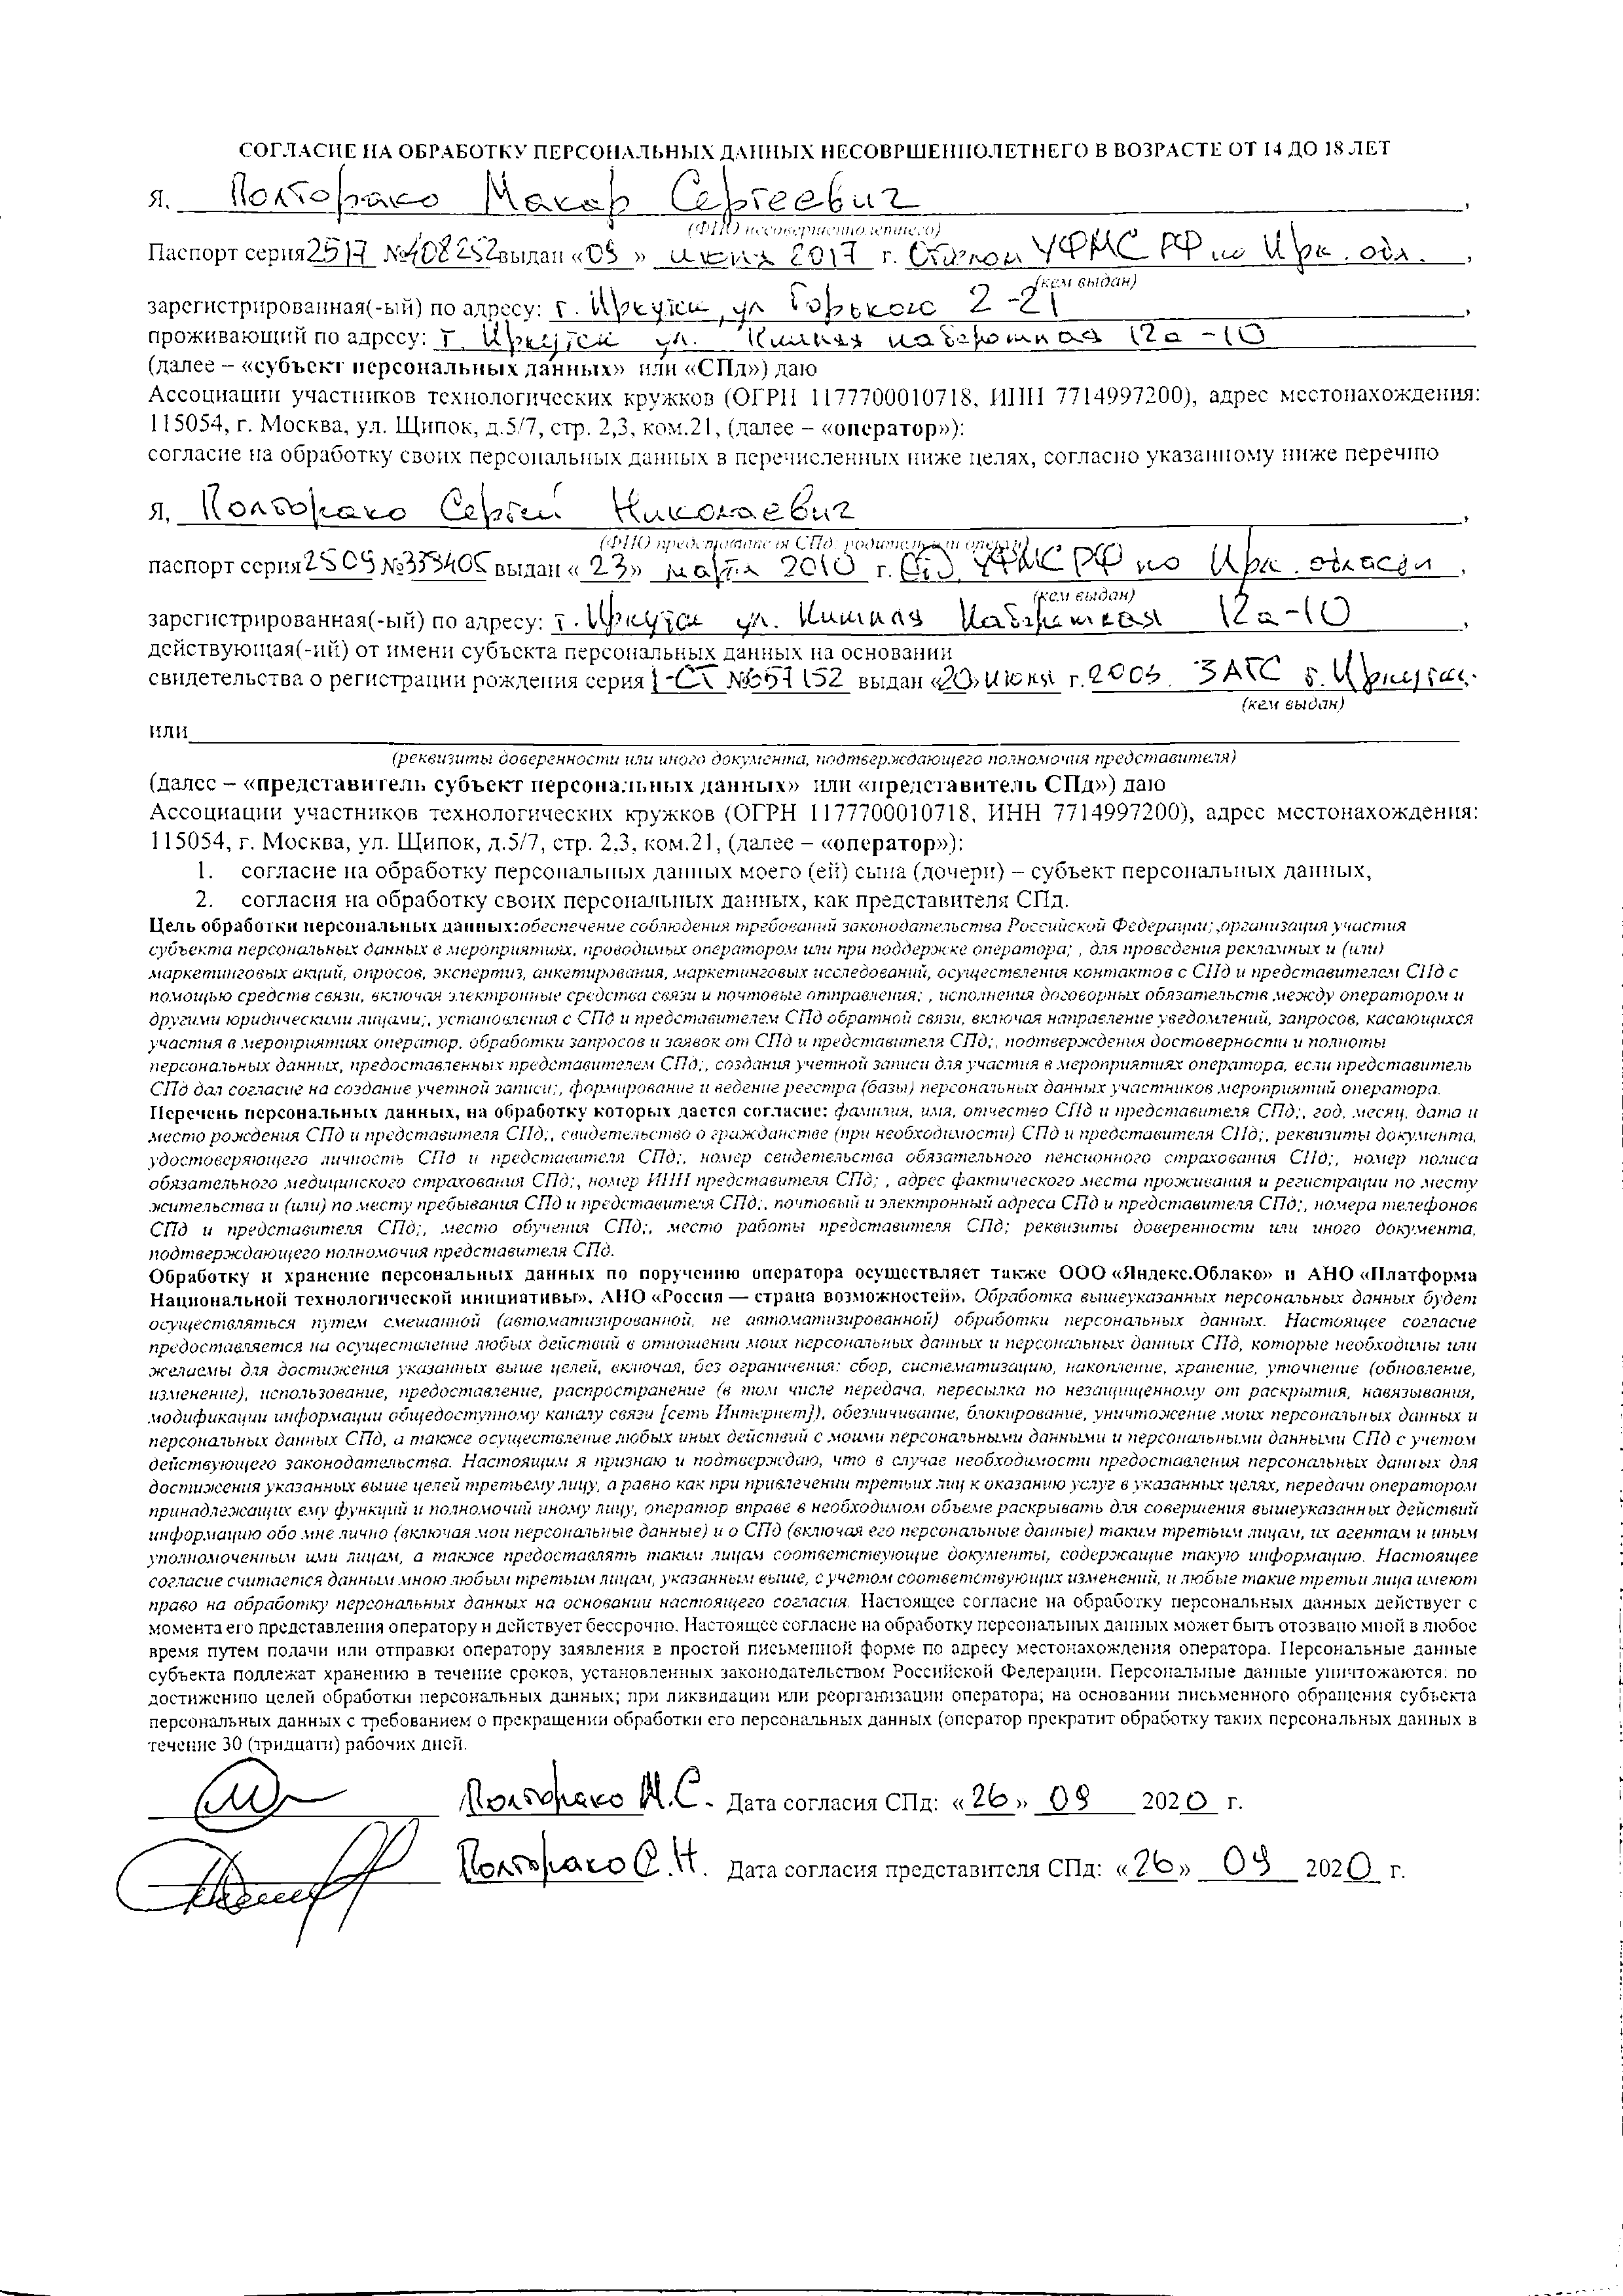 СОГЛАСИЕ НА ОБРАБОТКУ ПЕРСОНАЛЬНЫХ ДАННЫХ НЕСОВРШЕННОЛЕТНЕГО В ВОЗРАСТЕ ОТ 14 ДО 18 ЛЕТ
Я, Полторако Макар Сергеевич ,
(ФИО несовершеннолетнего)
Паспорт серия 2517 №408252 выдан «09» июня 2017 г. Отделом УФМС РФ по Ирк. обл. ,
(кем выдан)
зарегистрированная(-ый) по адресу: г. Иркутск, ул Горького 2-21 ,
проживающий по адресу: г. Иркутск ул. Нижняя набережная 12а-10
(далее – «субъект персональных данных» или «СПд») даю
Ассоциации участников технологических кружков (ОГРН 1177700010718, ИНН 7714997200), адрес местонахождения:
115054, г. Москва, ул. Щипок, д.5/7, стр. 2,3, ком.21, (далее – «оператор»):
согласие на обработку своих персональных данных в перечисленных ниже целях, согласно указанному ниже перечню
Я, Полторако Сергей Николаевич ,
(ФИО представителя СПд: родитель или опекун)
паспорт серия 2509 № выдан «23» марта 2010 г. Отд. УФМС РФ по Ирк. области ,
(кем выдан)
зарегистрированная(-ый) по адресу: г. Иркутск ул. Нижняя Набережная 12а-10 ,
действующая(-ий) от имени субъекта персональных данных на основании
свидетельства о регистрации рождения серия 1-СТ №657152 выдан «20» июня г. ЗАГС г. Иркутск.
(кем выдан)
или
(реквизиты доверенности или иного документа, подтверждающего полномочия представителя)
(далее – «представитель субъект персональных данных» или «представитель СПд») даю
Ассоциации участников технологических кружков (ОГРН 1177700010718, ИНН 7714997200), адрес местонахождения:
115054, г. Москва, ул. Щипок, д.5/7, стр. 2,3, ком.21, (далее – «оператор»):
1. согласие на обработку персональных данных моего (ей) сына (дочери) – субъект персональных данных,
2. согласия на обработку своих персональных данных, как представителя СПд.
Цель обработки персональных данных:обеспечение соблюдения требований законодательства Российской Федерации; ,организация участия
субъекта персональных данных в мероприятиях, проводимых оператором или при поддержке оператора; , для проведения рекламных и (или)
маркетинговых акций, опросов, экспертиз, анкетирования, маркетинговых исследований, осуществления контактов с СПд и представителем СПд с
помощью средств связи, включая электронные средства связи и почтовые отправления; , исполнения договорных обязательств между оператором и
другими юридическими лицами;, установления с СПд и представителем СПд обратной связи, включая направление уведомлений, запросов, касающихся
участия в мероприятиях оператор, обработки запросов и заявок от СПд и представителя СПд;, подтверждения достоверности и полноты
персональных данных, предоставленных представителем СПд;, создания учетной записи для участия в мероприятиях оператора, если представитель
СПд дал согласие на создание учетной записи;, формирование и ведение реестра (базы) персональных данных участников мероприятий оператора.
Перечень персональных данных, на обработку которых дается согласие: фамилия, имя, отчество СПд и представителя СПд;, год, месяц, дата и
место рождения СПд и представителя СПд;, свидетельство о гражданстве (при необходимости) СПд и представителя СПд;, реквизиты документа,
удостоверяющего личность СПд и представителя СПд;, номер свидетельства обязательного пенсионного страхования СПд;, номер полиса
обязательного медицинского страхования СПд;, номер ИНН представителя СПд; , адрес фактического места проживания и регистрации по месту
жительства и (или) по месту пребывания СПд и представителя СПд;, почтовый и электронный адреса СПд и представителя СПд;, номера телефонов
СПд и представителя СПд;, место обучения СПд;, место работы представителя СПд; реквизиты доверенности или иного документа,
подтверждающего полномочия представителя СПд.
Обработку и хранение персональных данных по поручению оператора осуществляет также ООО «Яндекс.Облако» и АНО «Платформа
Национальной технологической инициативы», АНО «Россия — страна возможностей». Обработка вышеуказанных персональных данных будет
осуществляться путем смешанной (автоматизированной, не автоматизированной) обработки персональных данных. Настоящее согласие
предоставляется на осуществление любых действий в отношении моих персональных данных и персональных данных СПд, которые необходимы или
желаемы для достижения указанных выше целей, включая, без ограничения: сбор, систематизацию, накопление, хранение, уточнение (обновление,
изменение), использование, предоставление, распространение (в том числе передача, пересылка по незащищенному от раскрытия, навязывания,
модификации информации общедоступному каналу связи [сеть Интернет]), обезличивание, блокирование, уничтожение моих персональных данных и
персональных данных СПд, а также осуществление любых иных действий с моими персональными данными и персональными данными СПд с учетом
действующего законодательства. Настоящим я признаю и подтверждаю, что в случае необходимости предоставления персональных данных для
достижения указанных выше целей третьему лицу, а равно как при привлечении третьих лиц к оказанию услуг в указанных целях, передачи оператором
принадлежащих ему функций и полномочий иному лицу, оператор вправе в необходимом объеме раскрывать для совершения вышеуказанных действий
информацию обо мне лично (включая мои персональные данные) и о СПд (включая его персональные данные) таким третьим лицам, их агентам и иным
уполномоченным ими лицам, а также предоставлять таким лицам соответствующие документы, содержащие такую информацию. Настоящее
согласие считается данным мною любым третьим лицам, указанным выше, с учетом соответствующих изменений, и любые такие третьи лица имеют
право на обработку персональных данных на основании настоящего согласия. Настоящее согласие на обработку персональных данных действует с
момента его представления оператору и действует бессрочно. Настоящее согласие на обработку персональных данных может быть отозвано мной в любое
время путем подачи или отправки оператору заявления в простой письменной форме по адресу местонахождения оператора. Персональные данные
субъекта подлежат хранению в течение сроков, установленных законодательством Российской Федерации. Персональные данные уничтожаются: по
достижению целей обработки персональных данных; при ликвидации или реорганизации оператора; на основании письменного обращения субъекта
персональных данных с требованием о прекращении обработки его персональных данных (оператор прекратит обработку таких персональных данных в
течение 30 (тридцати) рабочих дней.
Полторако М.С. Дата согласия СПд: «26» 09 2020 г.
Полторако С.Н. Дата согласия представителя СПд: «26» 09 2020 г.